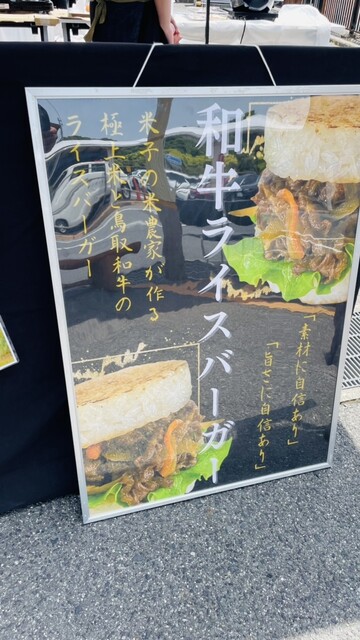 和牛ライスバーガー
「素材に自信あり」
「旨さに自信あり」
米子の米農家が作る
極上米と鳥取和牛の
ライスバーガー